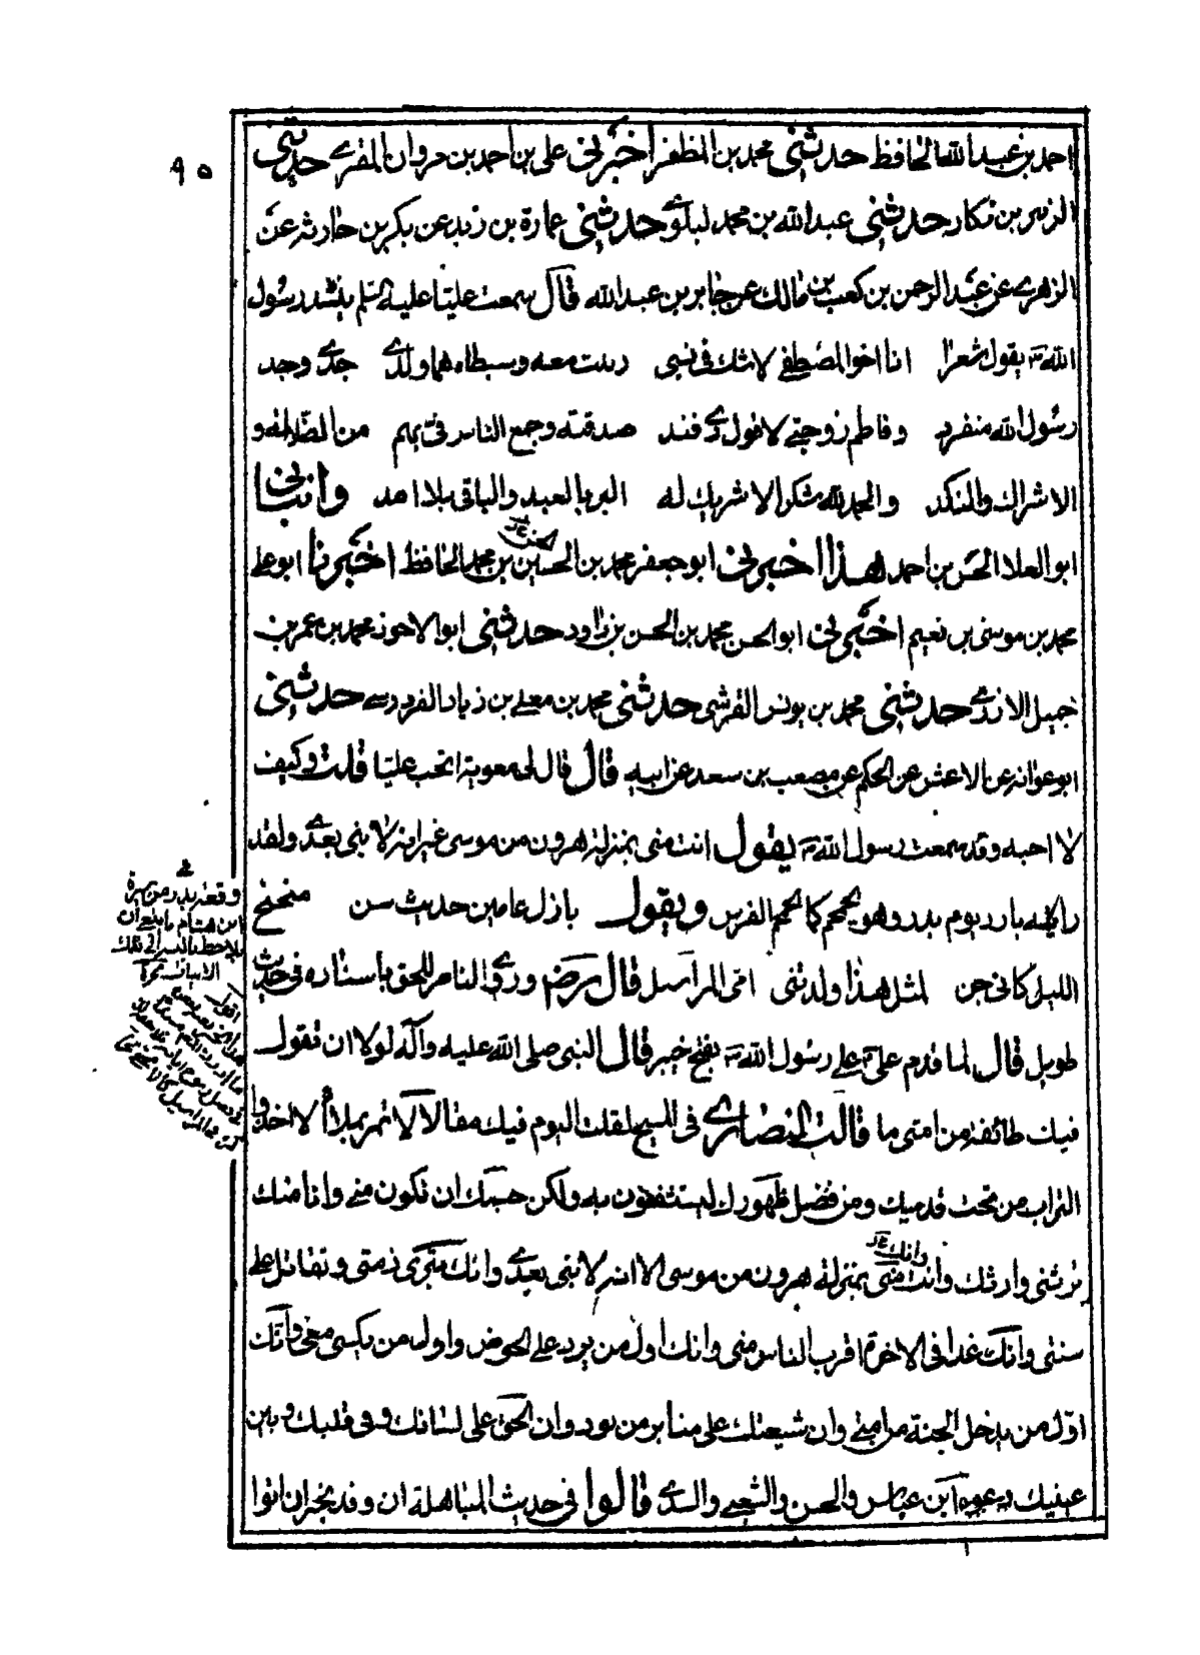 ٩٥
احمد بن عبد الله الحافظ حدثني محمد بن المظفر اخبرني علي بن احمد بن مروان المقرى حدثني
الزبير بن بكار حدثني عبد الله بن محمد لبلوى حدثني عمارة بن زيد عن بكر بن حارثه عن
الزهرى عن عبد الرحمن بن كعب بن مالك عن جابر بن عبد الله قال سمعت عليا عليه السلم ينشد رسول
الله ص يقول شعرا انا اخو المصطفى لا شك في نسبي ربيت معه وسبطاه هما ولدى جدى وجد
رسول الله منفرد وفاطم زوجتي لا قول ذى فند صدقته وجميع الناس في بهم من الضلالة و
الاشراك والنكد والحمد لله شكرا لا شريك له البر بالعبد والباقي بلا امد وانباني
ابو العلا الحسن بن احمد هذا اخبرني ابو جعفر محمد بن الحسين بن محمد الحافظ اخبرنا ابو علي
محمد بن موسى بن نعيم اخبرني ابو الحسن محمد بن الحسن بن داود حدثني ابو الاحوذ محمد بن عمر بن
جميل الازدى حدثني محمد بن يونس القرشي حدثني محمد بن معلى بن زياد الفردوسي حدثني
ابو عوانه عن الاعمش عن الحكم عن مصعب بن سعد عن ابيه قال قال لي معوية اتحب عليا قلت وكيف
لا احبه وقد سمعت رسول الله ص يقول انت مني بمنزلة هرون من موسى غير انه لا نبي بعدى ولقد
رايته بارز يوم بدر وهو يحمحم كما يحمحم الفرس ويقول بازل عامين حديث سن سنحنح
الليل كاني جن لمثل هذا ولدتني امي المراسيل قال مرض ورى الناصر للحق باسناده في حديث
طويل قال لما قدم علي ع على رسول الله ص بفتح خيبر قال النبي صلى الله عليه وآله لولا ان تقول
فيك طائفة من امتي ما قالت النصارى في المسيح لقلت اليوم فيك مقالا لا تمر بملأ الا اخذوا
التراب من تحت قدميك ومن فضل طهورك ليستشفون به ولكن حسبك ان تكون مني وانا منك
ترثني وارثك وانت مني بمنزلة هرون من موسى الا انه لا نبي بعدى وانك تبرى ذمتي وتقاتل على
سنتي وانك غدا في الاخرة اقرب الناس مني وانك اول من يرد على الحوض واول من يكسى معي وانك
اول من يدخل الجنة من امتي وان شيعتك على منابر من نور وان الحق على لسانك وفي قلبك وبين
عينيك دعوه ابن عباس والحسن والشعبي والسدى قالوا في حديث المباهلة ان وفد نجران اتوا
وانك
وقعة بدر من سيرة
ابن هشام
الابيات